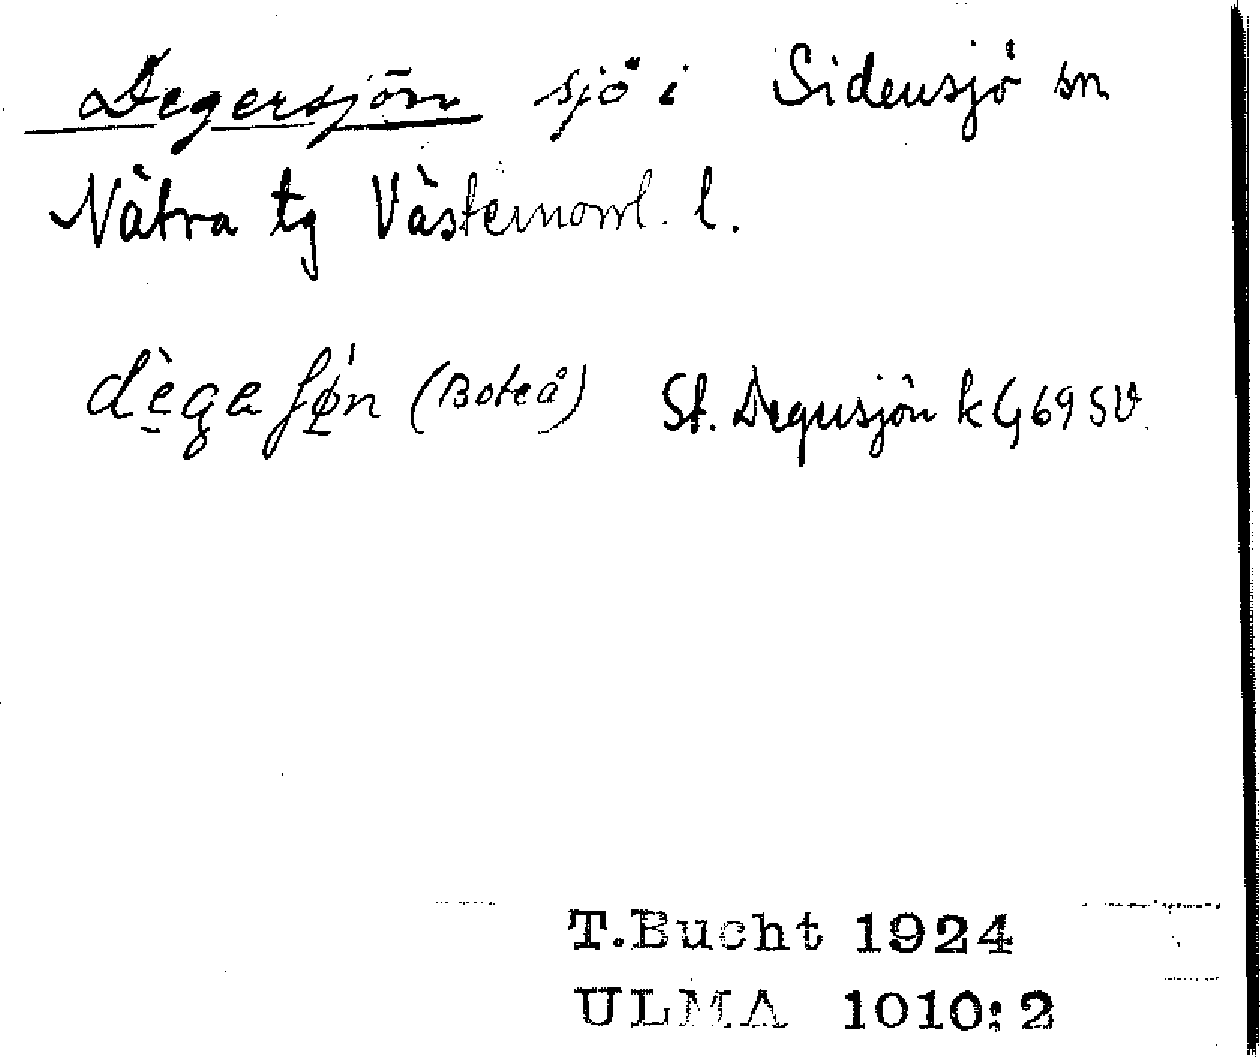 Degersjön sjö i Sidensjö sn
Nätra tg Västernorrl. l.
dègaʃøn (Boteå) St. Degersjön k G69SV
T.Bucht 1924
ULMA 1010:2